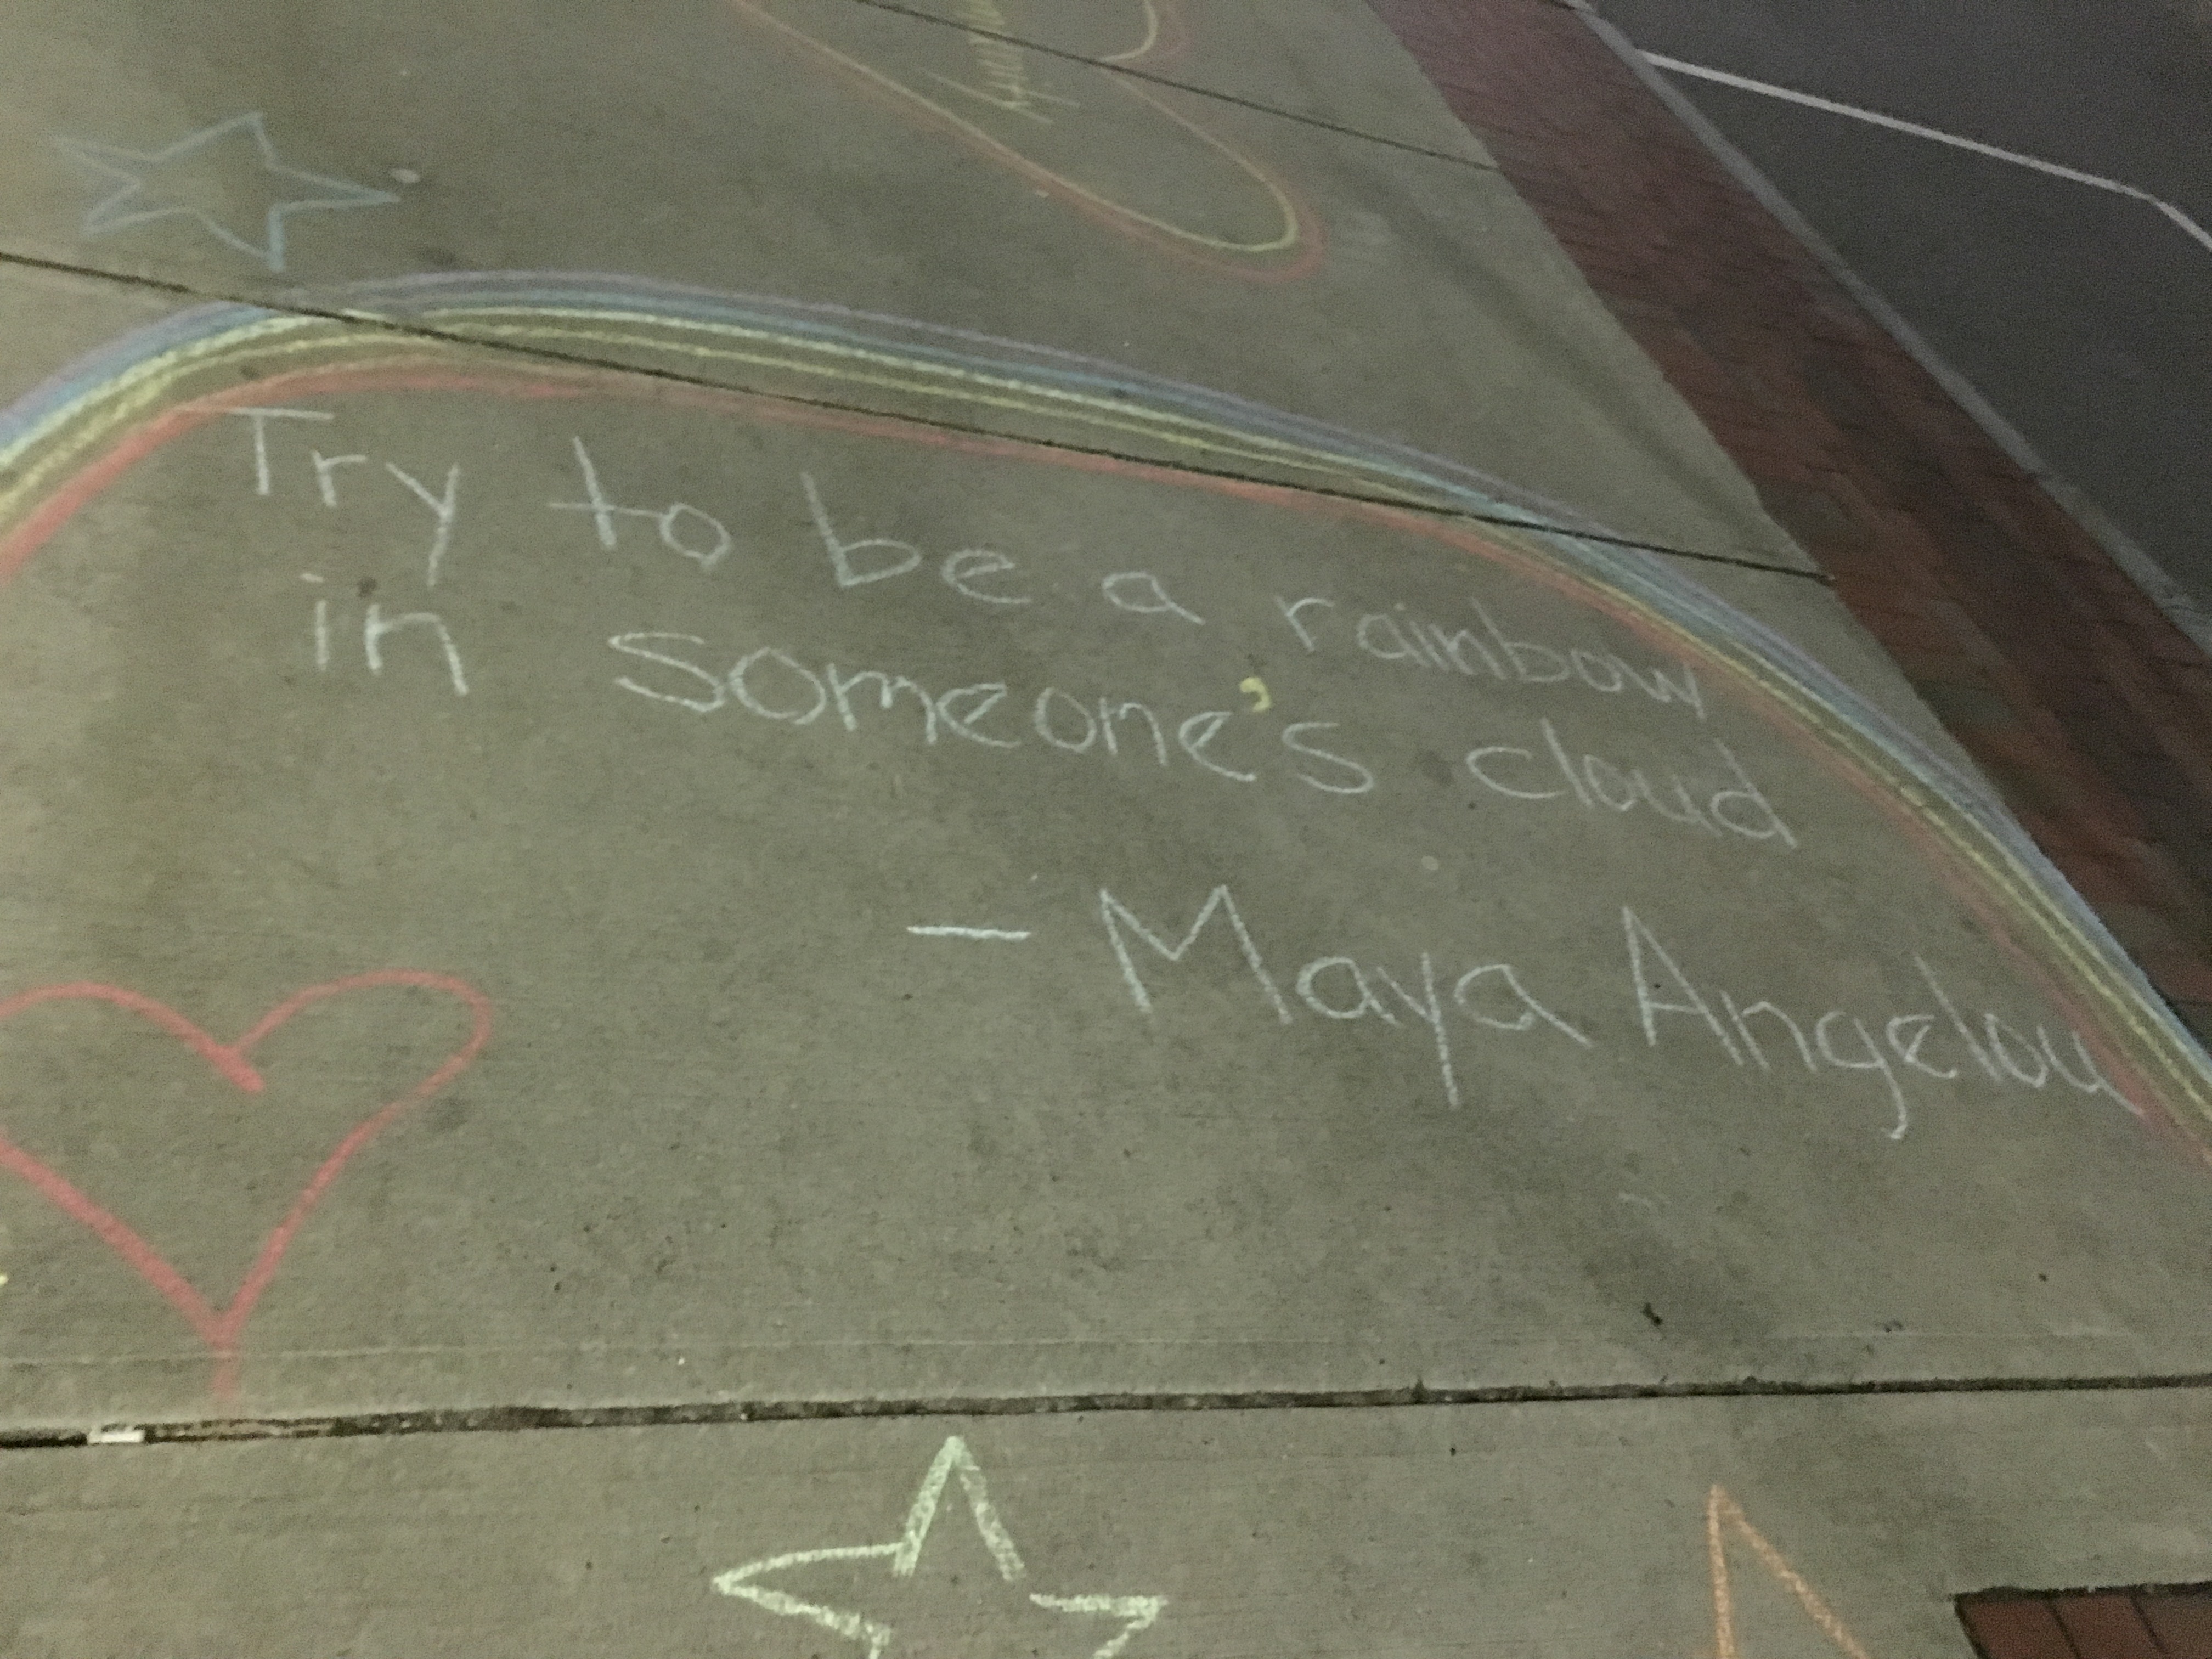 Try to be a rainbow
in someone's cloud
— Maya Angelou